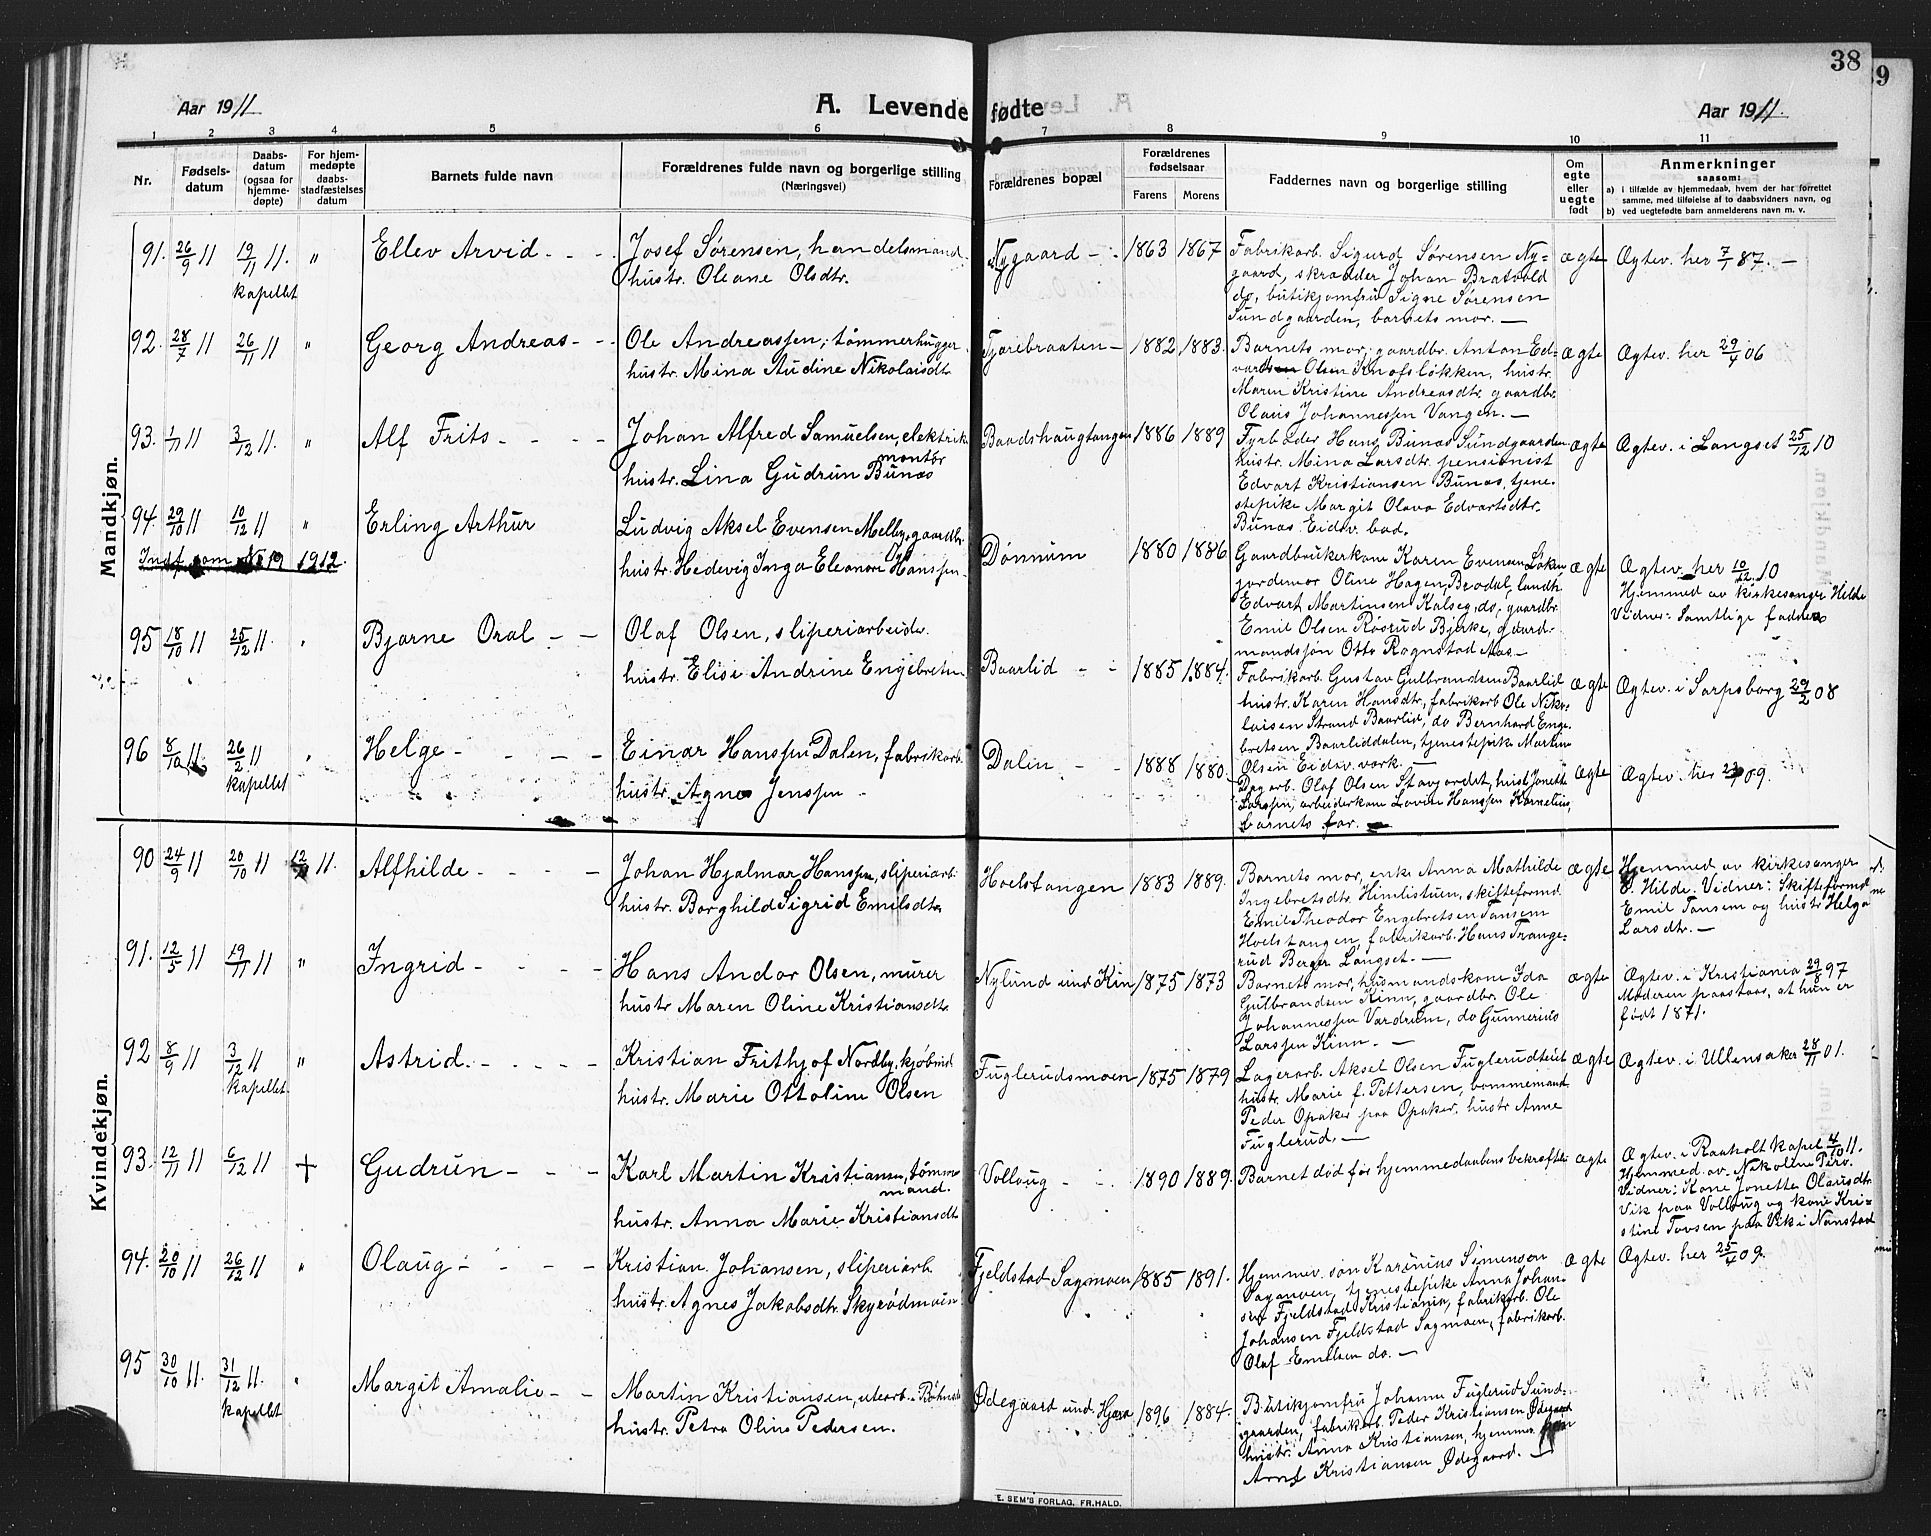 38
9
Aar 1911
A. Levende fødte
Aar 1911.
1 2 3 4 5 6 7 8 9 10 11
Nr.
Fødsels-
datum
Daabs-
datum
(ogsaa for
hjemme-
døpte)
For hjem-
medøpte
daabs-
stadfæstelses
datum
Barnets fulde navn
Forældrenes fulde navn og borgerlige stilling
(Næringsvei)
Forældrenes bopæl
Forældrenes
fødselsaar
Farens Morens
Faddernes navn og borgerlige stilling
Om
egte
eller
uegte
født
Anmerkninger
saasom:
a) i tilfælde av hjemmedaab, hvem der har forrettet
samme, med tilføielse af to daabsvidners navn, og
b) ved uegtefødte barn anmelderens navn m. v.
Mandkjøn.
91. 26/9 11 19/11 11. kapellet " Ellev Arvid - - -
Josef Sørensen, handelsmand
hustr. Oleane Olsdtr.
Nygaard - 1863 1867
Fabrikarb. Sigurd Sørensen Ny=
gaard, skrædder Johan Bratvold
do, butikjomfru Signe Sørensen
Sundgaarden, barnets mor. —
ægte Ægtev. her 7/1 87. —
92. 28/7 11 26/11 11 " Georg Andreas - -
Ole Andreassen, tømmerhugger
hustr. Mina Audine Nikolaisdtr
Tjærebraaten - 1882 1883.
Barnets mor, gaardbr. Anton Ed=
vardsen Olsen Knofsløkken, hustr.
Maren Kristine Andreasdtr, gaardbr.
Olaus Johannessen Vangen. —
ægte Ægtev. her 29/4 06
93. 1/11 11 3/12 11. " Alf Frits - - - -
Johan Alfred Samuelsen, elektrik.
montør
hustr. Lina Gudrun Bunæs
Baadshaugtangen 1886 1889
Fyrbøder Hans Bunæs Sundgaarden
hustr. Mina Larsdtr. pensionist
Edvart Kristiansen Bunæs, tjene=
stepike Margit Olava Edvartsdtr.
Bunæs Eidsv. bad.
ægte Ægtev. i Langset 25/12 10
94. 29/10 11 10/12 11 " Erling Arthur
Indf. som No 19 1912.
Ludvig Aksel Evensen Melby, gaardbr.
hustr. Hedevig Inga Eleonore Hanssen
Dønnum 1880 1886
Gaardbrukerkone Karen Evensen Løken
jordemor Oline Hagen, Brødal, landh.
Edvart Martinsen Kalseg, do, gaardbr.
Emil Olsen Røsrud Bjerke, gaard=
mandssøn Otto Rognstad Mos —
ægte Ægtev. her 10/12 10
Hjemmed av kirkesanger Hilde
Vidner: Samtlige faddere
95 18/10 11 25/12 11. " Bjarne Oral - -
Olaf Olsen, sliperiarbeider.
hustr. Elise Andrine Engebretsen
Baarlid - - 1885 1884.
Fabrikarb. Gustav Gulbrandsen Baarlid
hustr. Karen Hansdtr, fabrikarb Ole Niko=
laisen Strand Baarlid, do Bernhard Enge=
bretsen Baarliddalen, tjenestepike Martine
Olsen Eidsv. værk. —
ægte Ægtev. i Sarpsborg 29/2 08
96 8/10 11 26/2 11 kapellet " Helge - - - -
Einar Hanssen Dalen, fabrikarb.
hustr. Agnes Jenssen -
Dalen - - 1888 1880.
Dagarb. Olaf Olsen Stavjordet, hust Jonette
Larssen, arbeiderkone Lovise Hanssen Kornelius,
barnets far. —
ægte Ægtev. her 09.
Kvindekjøn.
90 24/9 11 20/10 11 11. Alfhilde - - - -
Johan Hjalmar Hanssen, sliperiarb.
hustr. Borghild Sigrid Emilsdtr
Hoelstangen 1883 1889.
Barnets mor, enke Anna Mathilde
Ingebretsdtr. Himlistuen, skifteformd.
Emil Theodor Engebretsen Tansem
Hoelstangen, fabrikarb. Hans Trange=
rud Berger Langset. —
ægte Hjemmed av kirkesanger
E. Hilde. Vidner: Skifteformd
Emil Tansem og hustr Helga
Larsdtr. —
91. 12/5 11 19/11 11 " Ingrid - - - -
Hans Andor Olsen, murer
hustr Maren Oline Kristiansdtr.
Nylund und Kin 1875 1873
Barnets mor, husmandskone Ida
Gulbrandsen Kinn, gaardbr. Ole
Johannessen Vardrum, do Gunnerius
Larssen Kinn. —
ægte Ægtev. i Kristiania 29/8 97
Moderen paastaar, at hun er
født 1871.
92 8/9 11 3/12 11 kapellet " Astrid. - - - - -
Kristian Frithjof Nordby, kjøbmd
hustr. Marie Ottoline Olsen
Fuglerudsmoen 1875 1879
Lagerarb. Aksel Olsen Fuglerudteiet
hustr. Marie f. Pettersen, bommemand
Peder Opaker paa Opaker, hustr Anne
Fuglerud. —
ægte Ægtev. i Ullensaker 28/11 01.
93. 12/11 11 6/12 11 + Gudrun - - -
Karl Martin Kristiansen, tømmer
mand.
hustr. Anna Marie Kristiansdtr
Vollaug - - 1890 1889.
Barnet død før hjemmedaabens bekræftelse
ægte Ægtev. i Raaholt kapel 4/10 11.
Hjemmed. av. Nikoline Perv.
Vidner: Kone Jonette Olausdtr.
Vik paa Vollaug og kone Kri=
stine Tovsen paa Vik i Nanstad
94. 20/10 11 26/12 11 " Olaug - - - -
Kristian Johansen, sliperiarb.
hustr. Agnes Jakobsdtr. Skyrødmoen
Fjeldstad Sagmoen 1885 1891.
Hjemmev. søn Karenius Simenson
Sagmoen, tjenestepike Anna Johan=
sen Fjeldstad Kristiania, fabrikarb. Ole
Johansen Fjeldstad Sagmoen, fabrikarb.
Olaf Emilsen do. —
ægte Ægtev. her 25/4 09.
95 30/10 11. 31/12 11. kapellet " Margit Amalie - -
Martin Kristiansen, utearb. Bøhnsd.
hustr. Petra Oline Pedersen.
Ødegaard und Hjera 1896 1884.
Butikjomfru Johanne Fuglerud Sund=
gaarden, fabrikarb. Peder Kristiansen Ødegaard
hustr. Anna Kristiansen, hjemmev. søn
Arne Kristiansen Ødegaard. —
E. SEM'S FORLAG, FR.HALD.